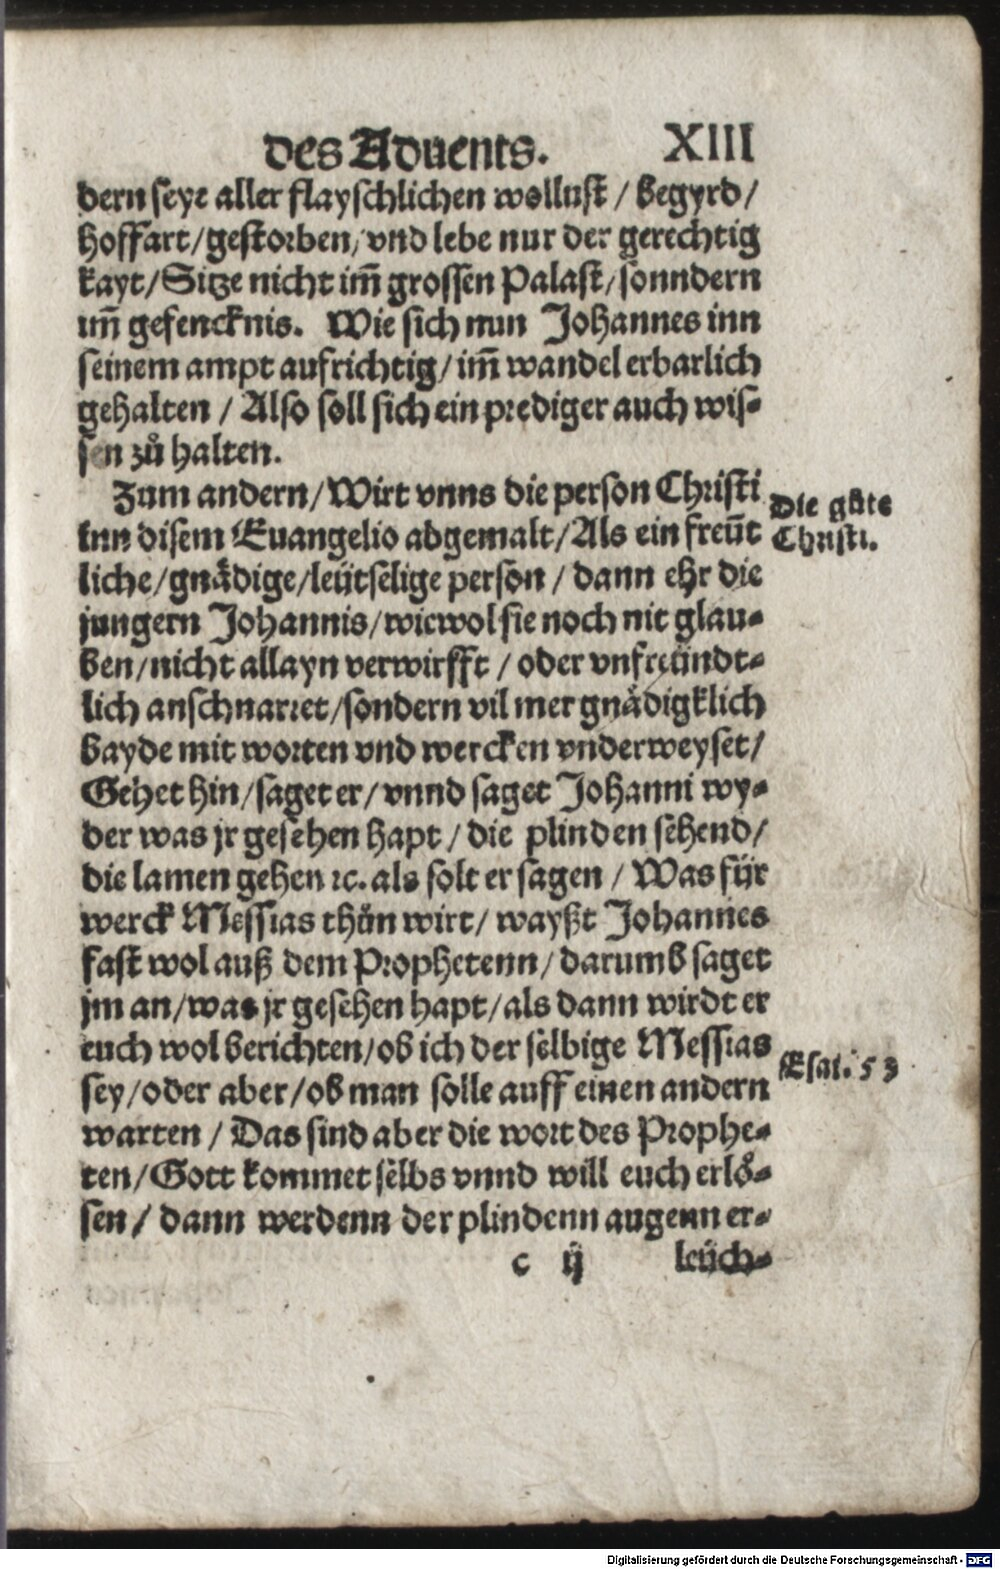 des Aduents. XIII
dern seye aller flayschlichen wollust / begyrd /
hoffart / gestorben / vnd lebe nur der gerechtig
kayt / Sitze nicht im̄ grossen Palast / sonndern
im̄ gefencknis. Wie sich nun Johannes inn
seinem ampt aufrichtig / im̄ wandel erbarlich
gehalten / Also soll sich ein prediger auch wis⸗
sen zů halten.
Zum andern / Wirt vnns die person Christi
inn disem Euangelio abgemalt / Als ein freüt
liche / gnädige / leütselige person / dann ehr die
jungern Johannis / wiewol sie noch nit glau⸗
ben / nicht allayn verwirfft / oder vnfreündt⸗
lich anschnarret / sondern vil mer gnädigklich
bayde mit worten vnd wercken vnderweyset /
Gehet hin / saget er / vnnd saget Johanni wy⸗
der was jr gesehen hapt / die plinden sehend /
die lamen gehen ꝛc. als solt er sagen / Was für
werck Messias thůn wirt / wayßt Johannes
fast wol auß dem Prophetenn / darumb saget
jm an / was jr gesehen hapt / als dann wirdt er
euch wol berichten / ob ich der selbige Messias
sey / oder aber / ob man solle auff einen andern
warten / Das sind aber die wort des Prophe⸗
ten / Gott kommet selbs vnnd will euch erlö⸗
sen / dann werdenn der plindenn augenn er⸗
c ij leüch⸗
Die güte
Christi.
Esai. 53
Digitalisierung gefördert durch die Deutsche Forschungsgemeinschaft - DFG